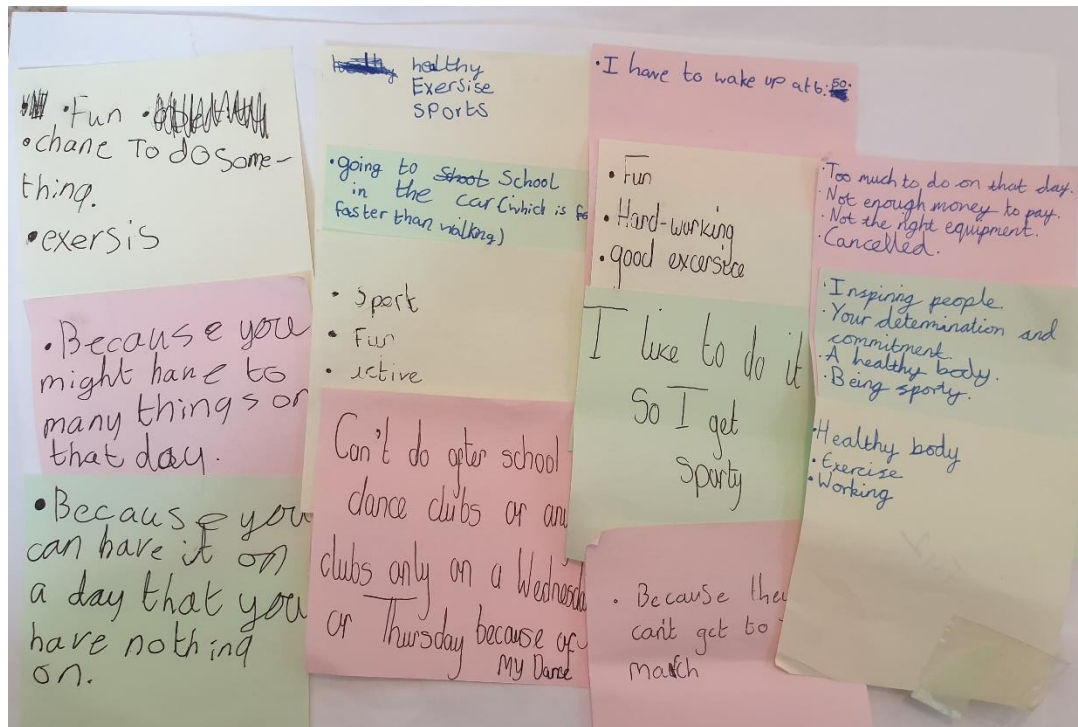 • Fun •
• chane To do some-
thing.
• exersis
• Because you
might have to
many things on
that day.
• Because you
can have it on
a day that you
have nothing
on.
healthy
Exersise
sports
• going to Shoot School
in the car (which is
faster than walking)
• Sport
• Fun
• active
Can't do after school
dance clubs or any
clubs only on a Wednesday
or Thursday because of
My Dance
• I have to wake up at 6:50.
• Fun
• Hard-working
• good excersice
I like to do it
So I get
Sporty
• Because they
can't get to
match
• Too much to do on that day.
• Not enough money to pay.
• Not the right equipment.
• Cancelled.
• Inspiring people.
• Your determination and
commitment.
• A healthy body.
• Being sporty.
• Healthy body
• Exercise
• Working